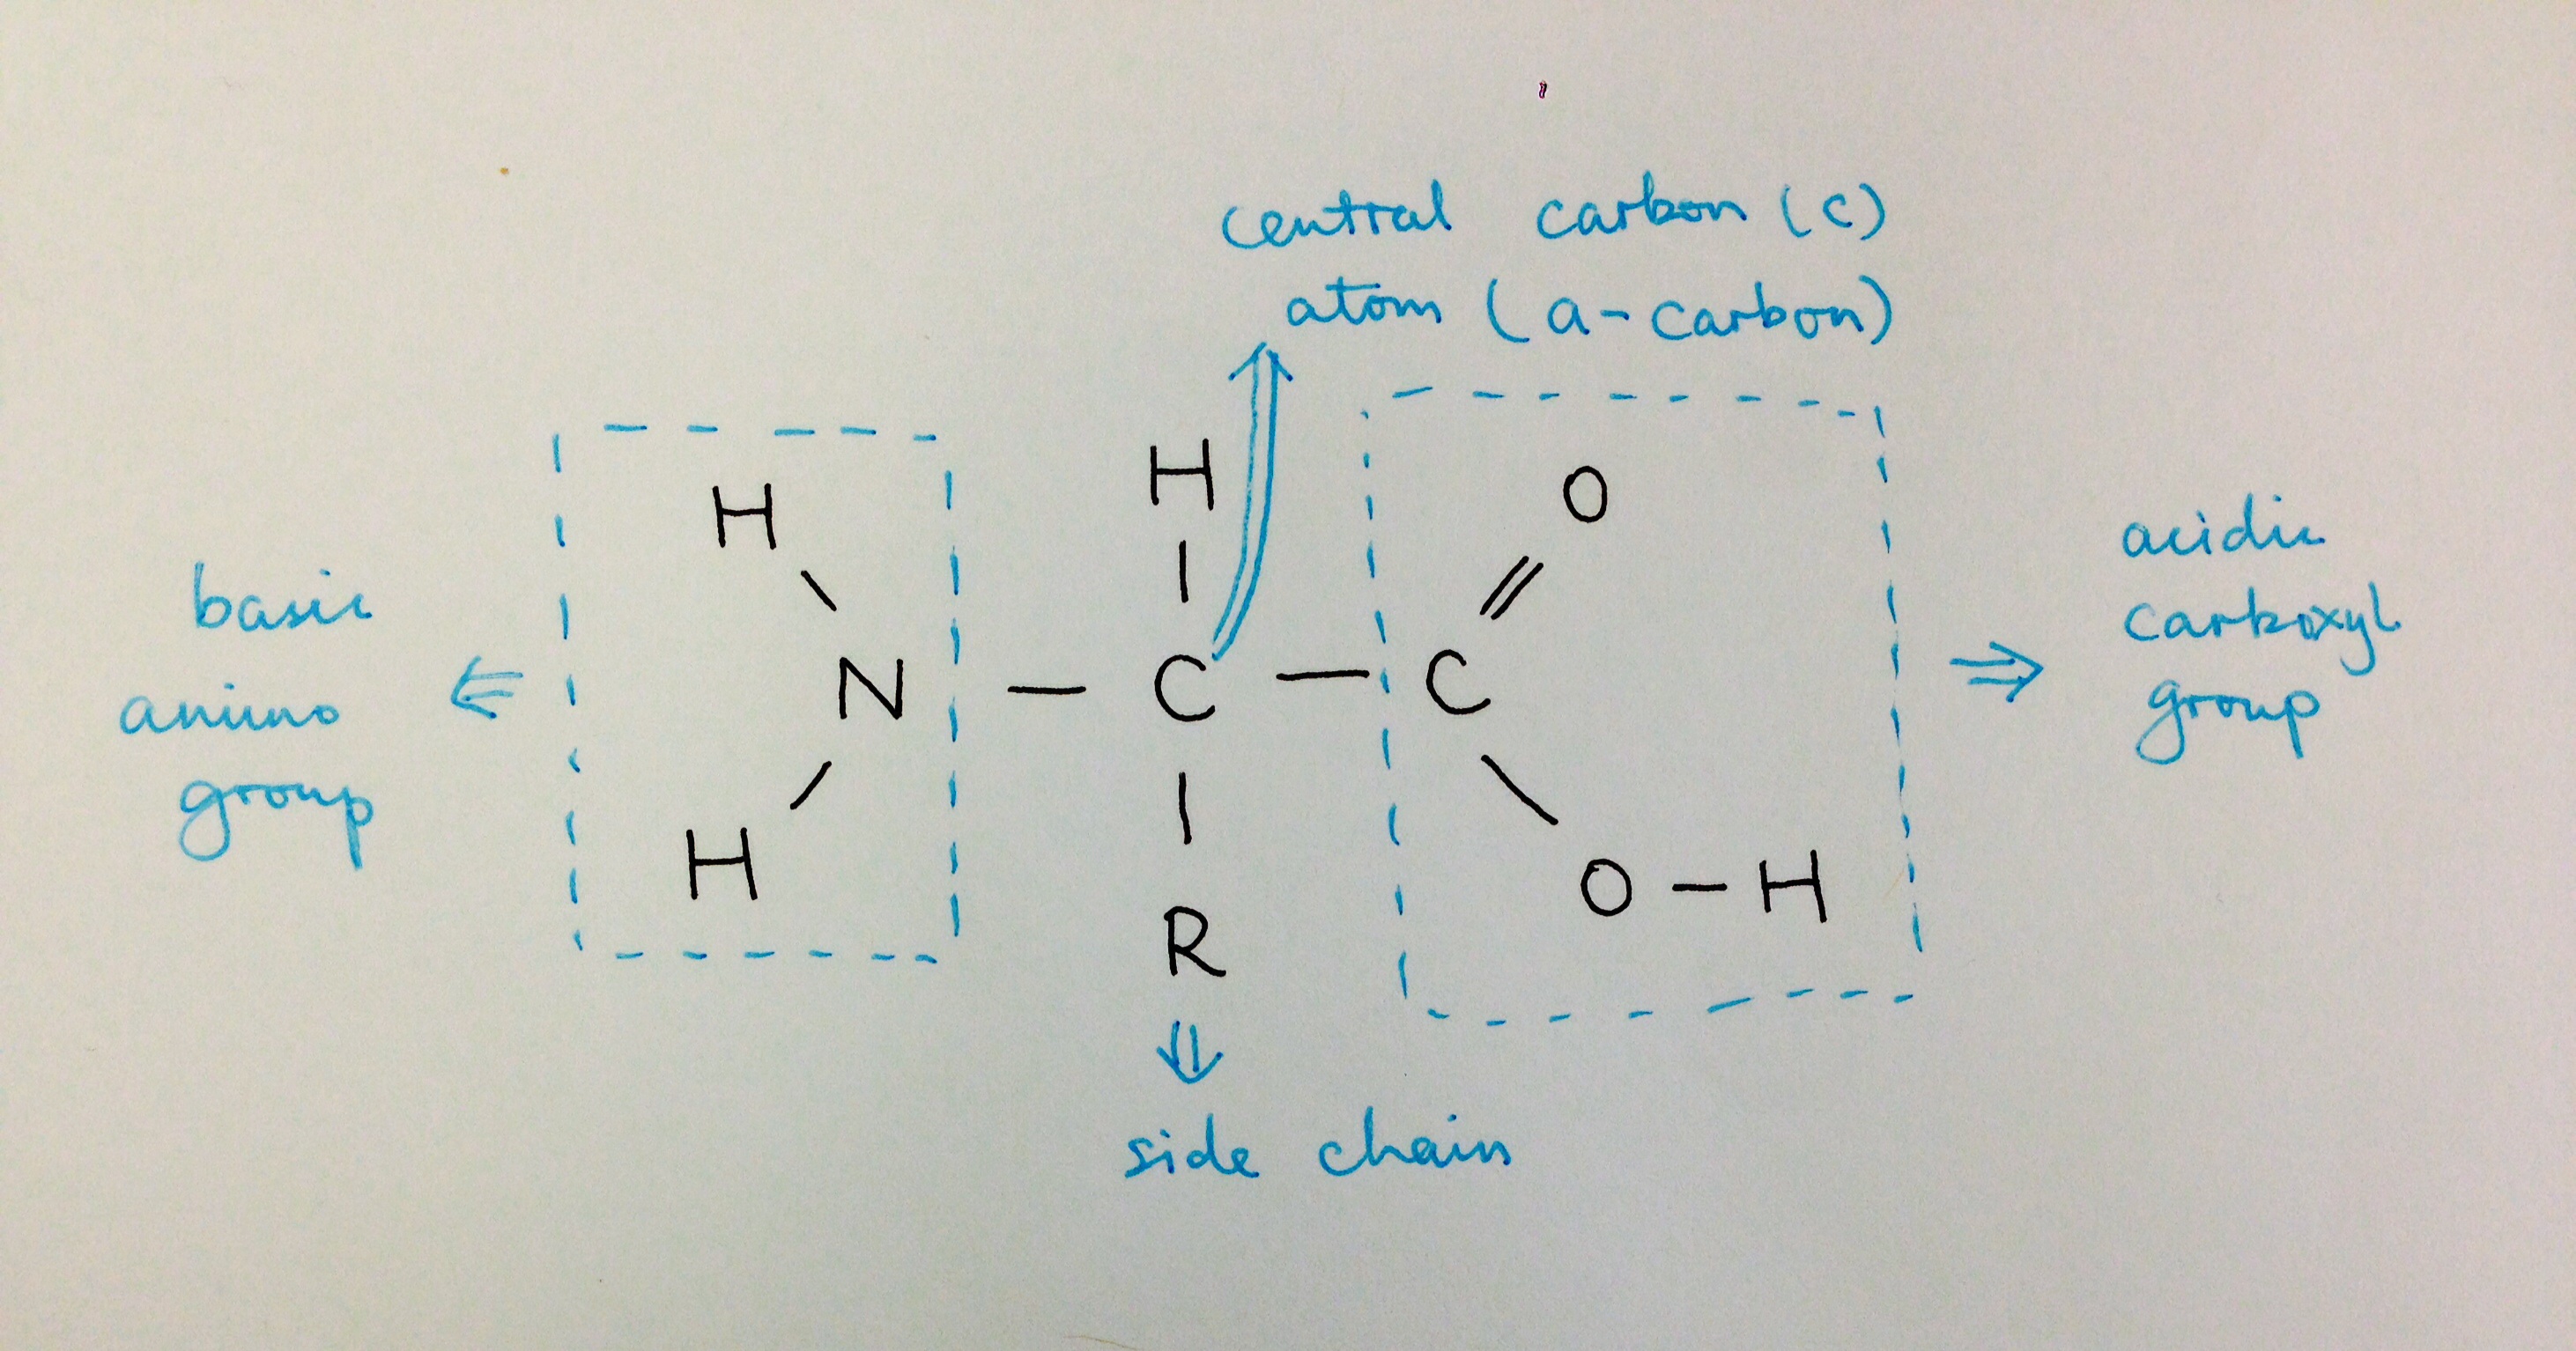 central carbon (c)
atom (a-carbon)
H
H
O
basic
amino
group
N — C — C
acidic
carboxyl
group
H
R
O — H
side chain